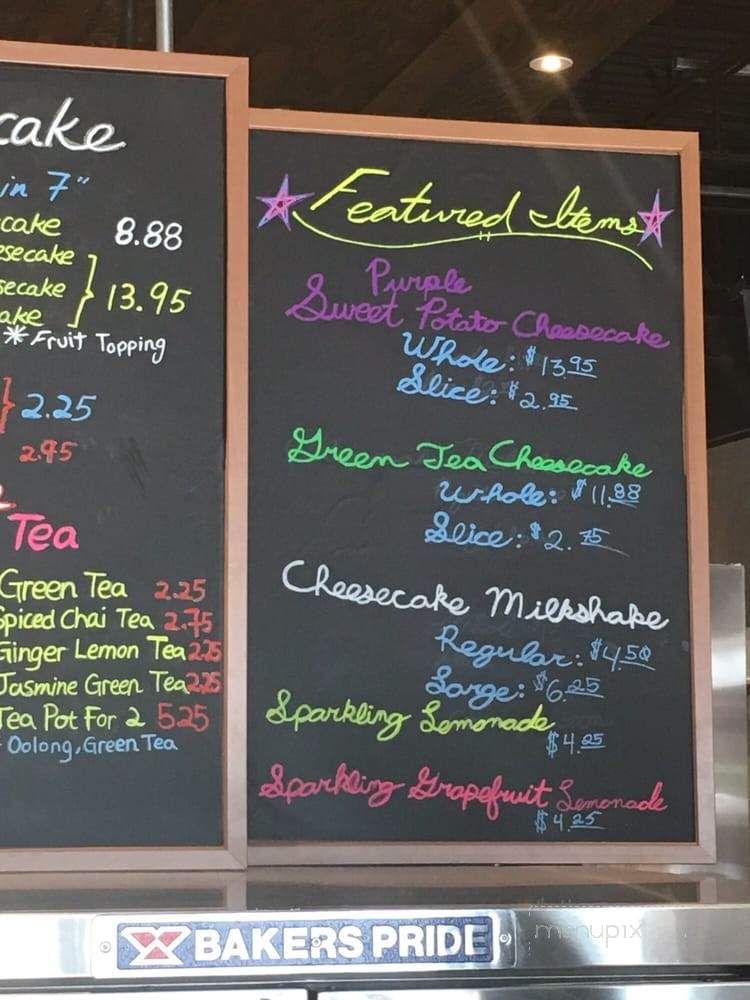 cake
in 7"
cake 8.88
esecake
secake } 13.95
ake
*Fruit Topping
} 2.25
2.95
Tea
Green Tea 2.25
Spiced Chai Tea 2.75
Ginger Lemon Tea 2.25
Jasmine Green Tea 2.25
Tea Pot For 2 5.25
Oolong, Green Tea
Featured Items
Purple
Sweet Potato Cheesecake
Whole: $13.95
Slice: $2.95
Green Tea Cheesecake
Whole: $11.88
Slice: $2.75
Cheesecake Milkshake
Regular: $4.50
Large: $6.25
Sparkling Lemonade
$4.25
Sparkling Grapefruit Lemonade
$4.25
BAKERS PRIDE
menupix